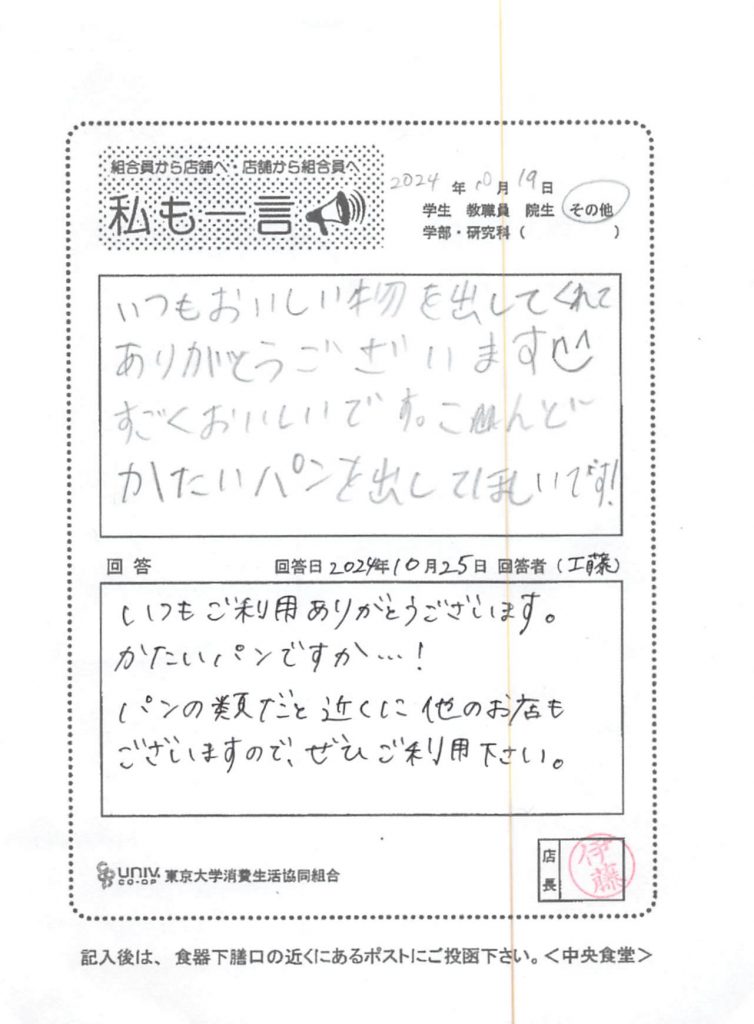 組合員から店舗へ・店舗から組合員へ
私も一言
2024年10月19日
学生 教職員 院生 その他
学部・研究科（ ）
いつもおいしい物を出してくれて
ありがとうございます^^
すごくおいしいです。こんど
かたいパンを出してほしいです!
回答 回答日2024年10月25日 回答者（工藤）
いつもご利用ありがとうございます。
かたいパンですか…!
パンの類だと近くに他のお店も
ございますので、ぜひご利用下さい。
UNIV. CO-OP 東京大学消費生活協同組合
店長 伊藤
記入後は、食器下膳口の近くにあるポストにご投函下さい。＜中央食堂＞